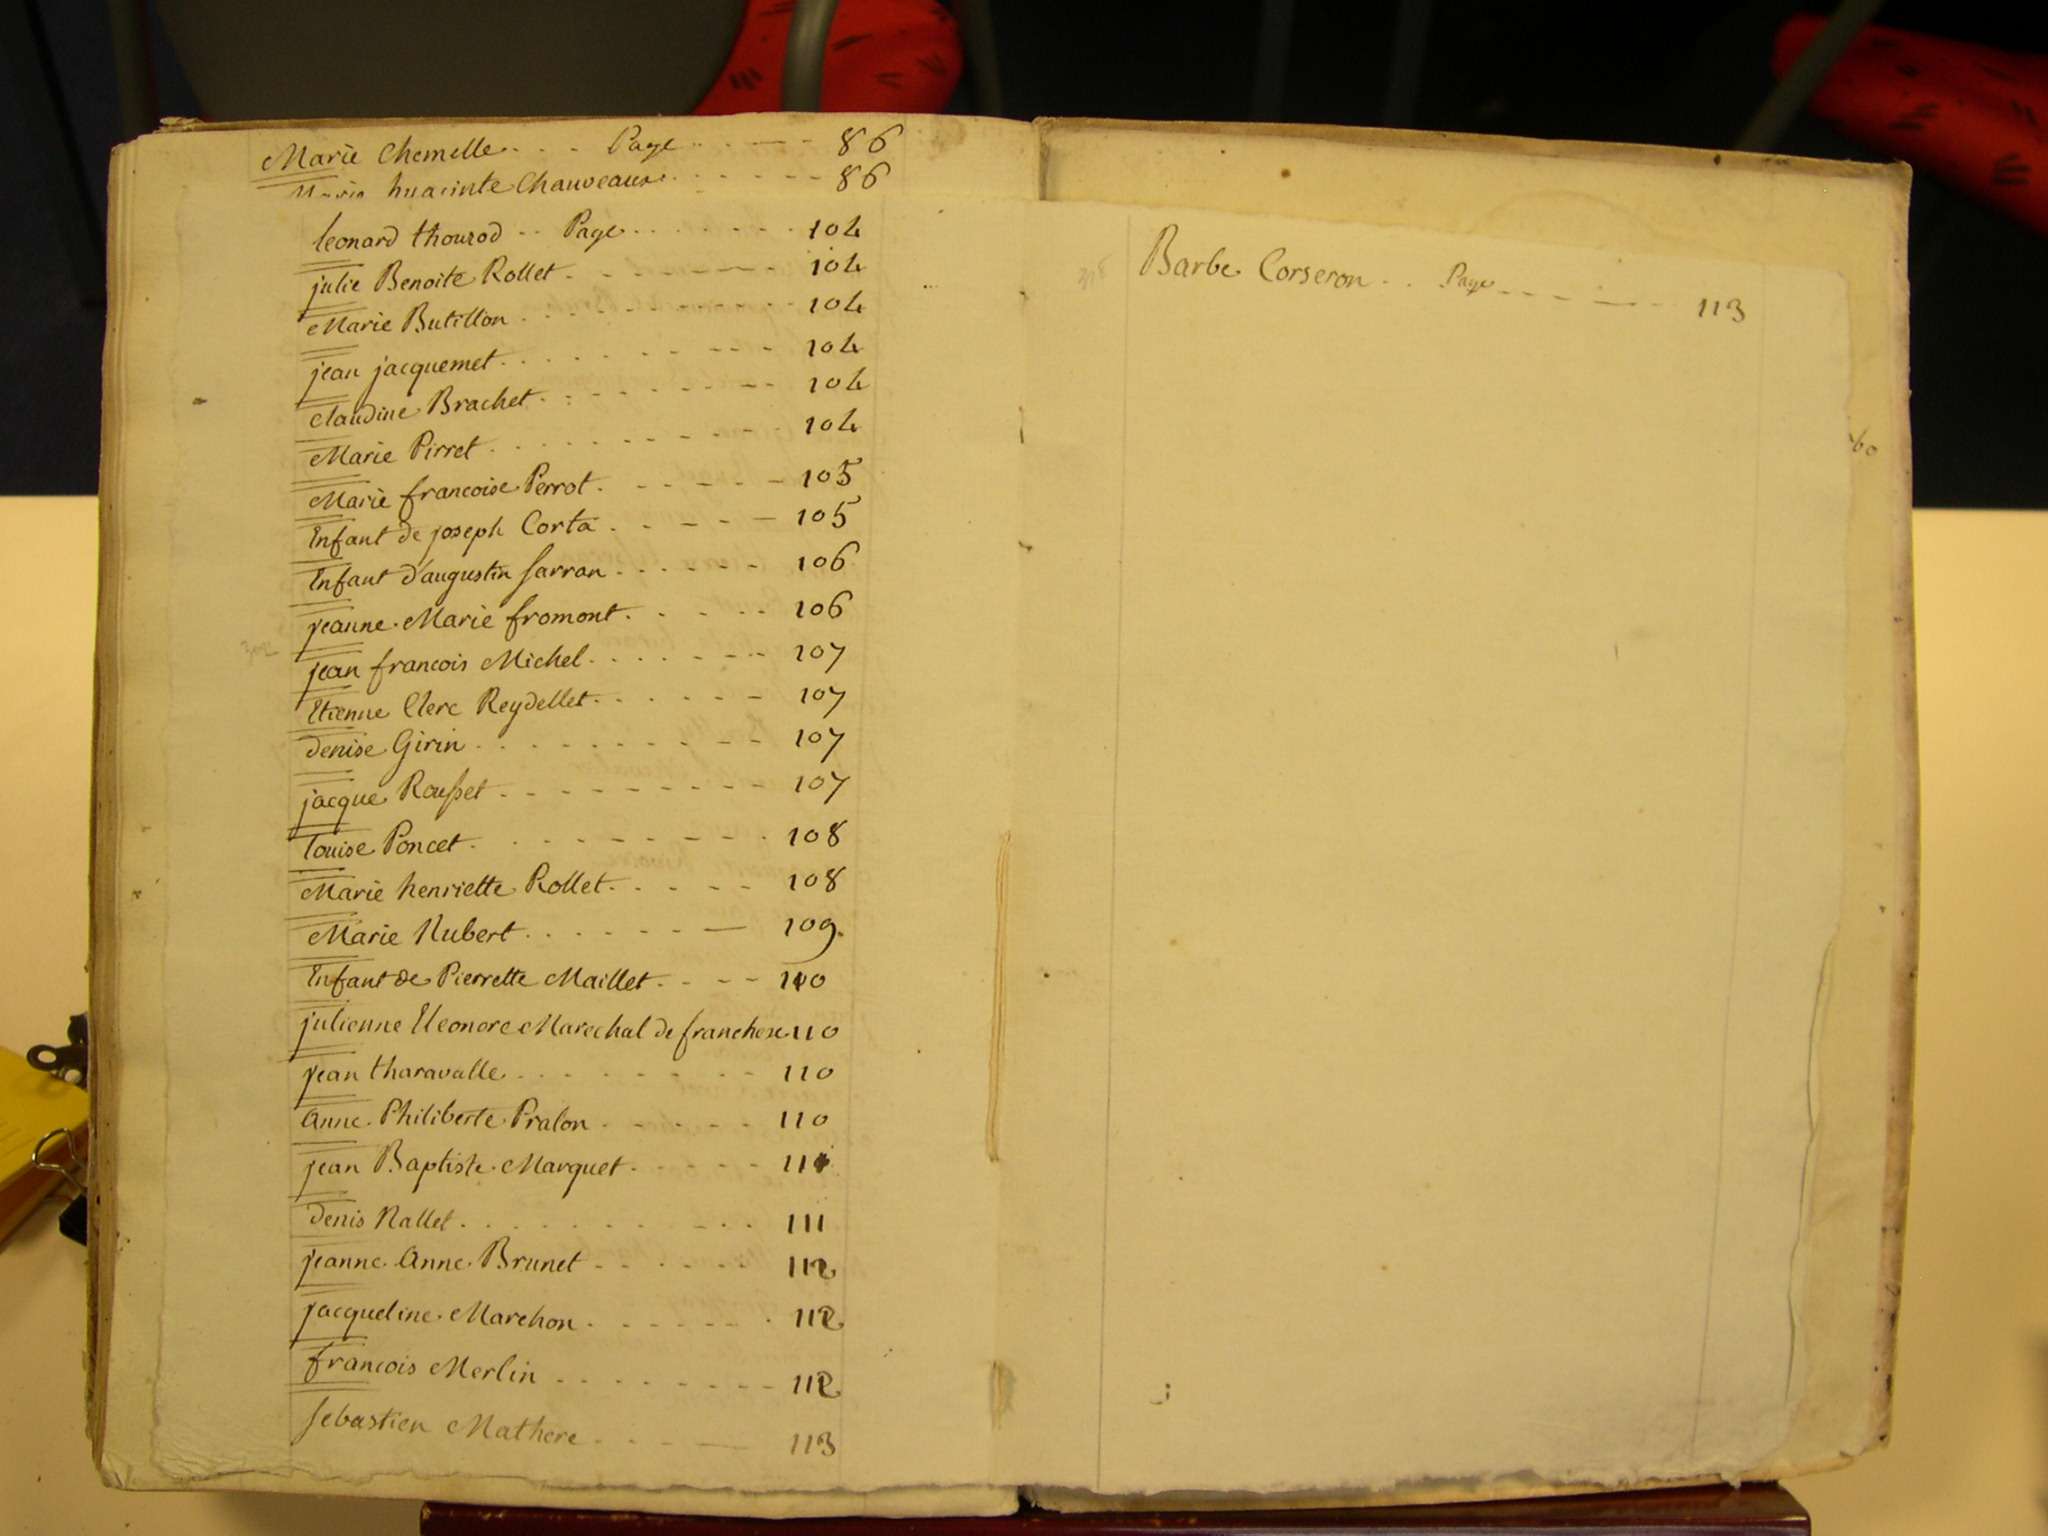 Marie Chemelle . . . Page . . - - - 86
Marie huacinte Chauveaux . . . . - - 86
leonard thourod - - Page . . . . . . . 104
julie Benoite Rollet . . . - - - - - 104
Marie Butillon . . . . . . - - - 104
jean jacquemet . . . . . . - - - - 104
Claudine Brachet . . . . . - - - - 104
Marie Pirret . . . . . - - - - - 104
Marie francoise Perrot . - - - - - 105
Enfant de joseph Corta . . - - - 105
Enfant d'augustin sarran . . . . - - 106
jeanne Marie fromont . . . - - 106
jean francois Michel . . . . . - - - 107
Etienne Clerc Reydellet . . . . - - - 107
denise Girin . . . . . . - - - - 107
jacque Rousset . - - - - - - - - 107
louise Poncet . . . - - - - - - . 108
Marie henriette Rollet . . . - - - 108
Marie Hubert . . . . . . - — 109.
Enfant de Pierrette Maillet . - - - 110
julienne Eleonore Marechal de franchese 110
jean tharavalle . . . . . . - - - 110
Anne Philiberte Pralon . . . - - - 110
jean Baptiste Marquet . . . - - - 111
denis Nallet . . . . . . . . . - . 111
jeanne Anne Brunet - - . . . - - 112
jacqueline Marchon . . . . . - . 112
francois Merlin - - . . . . - - - 112
sebastien Mathere . . . - - 113
302
Barbe Corseron . . Page . - - - — - - 113